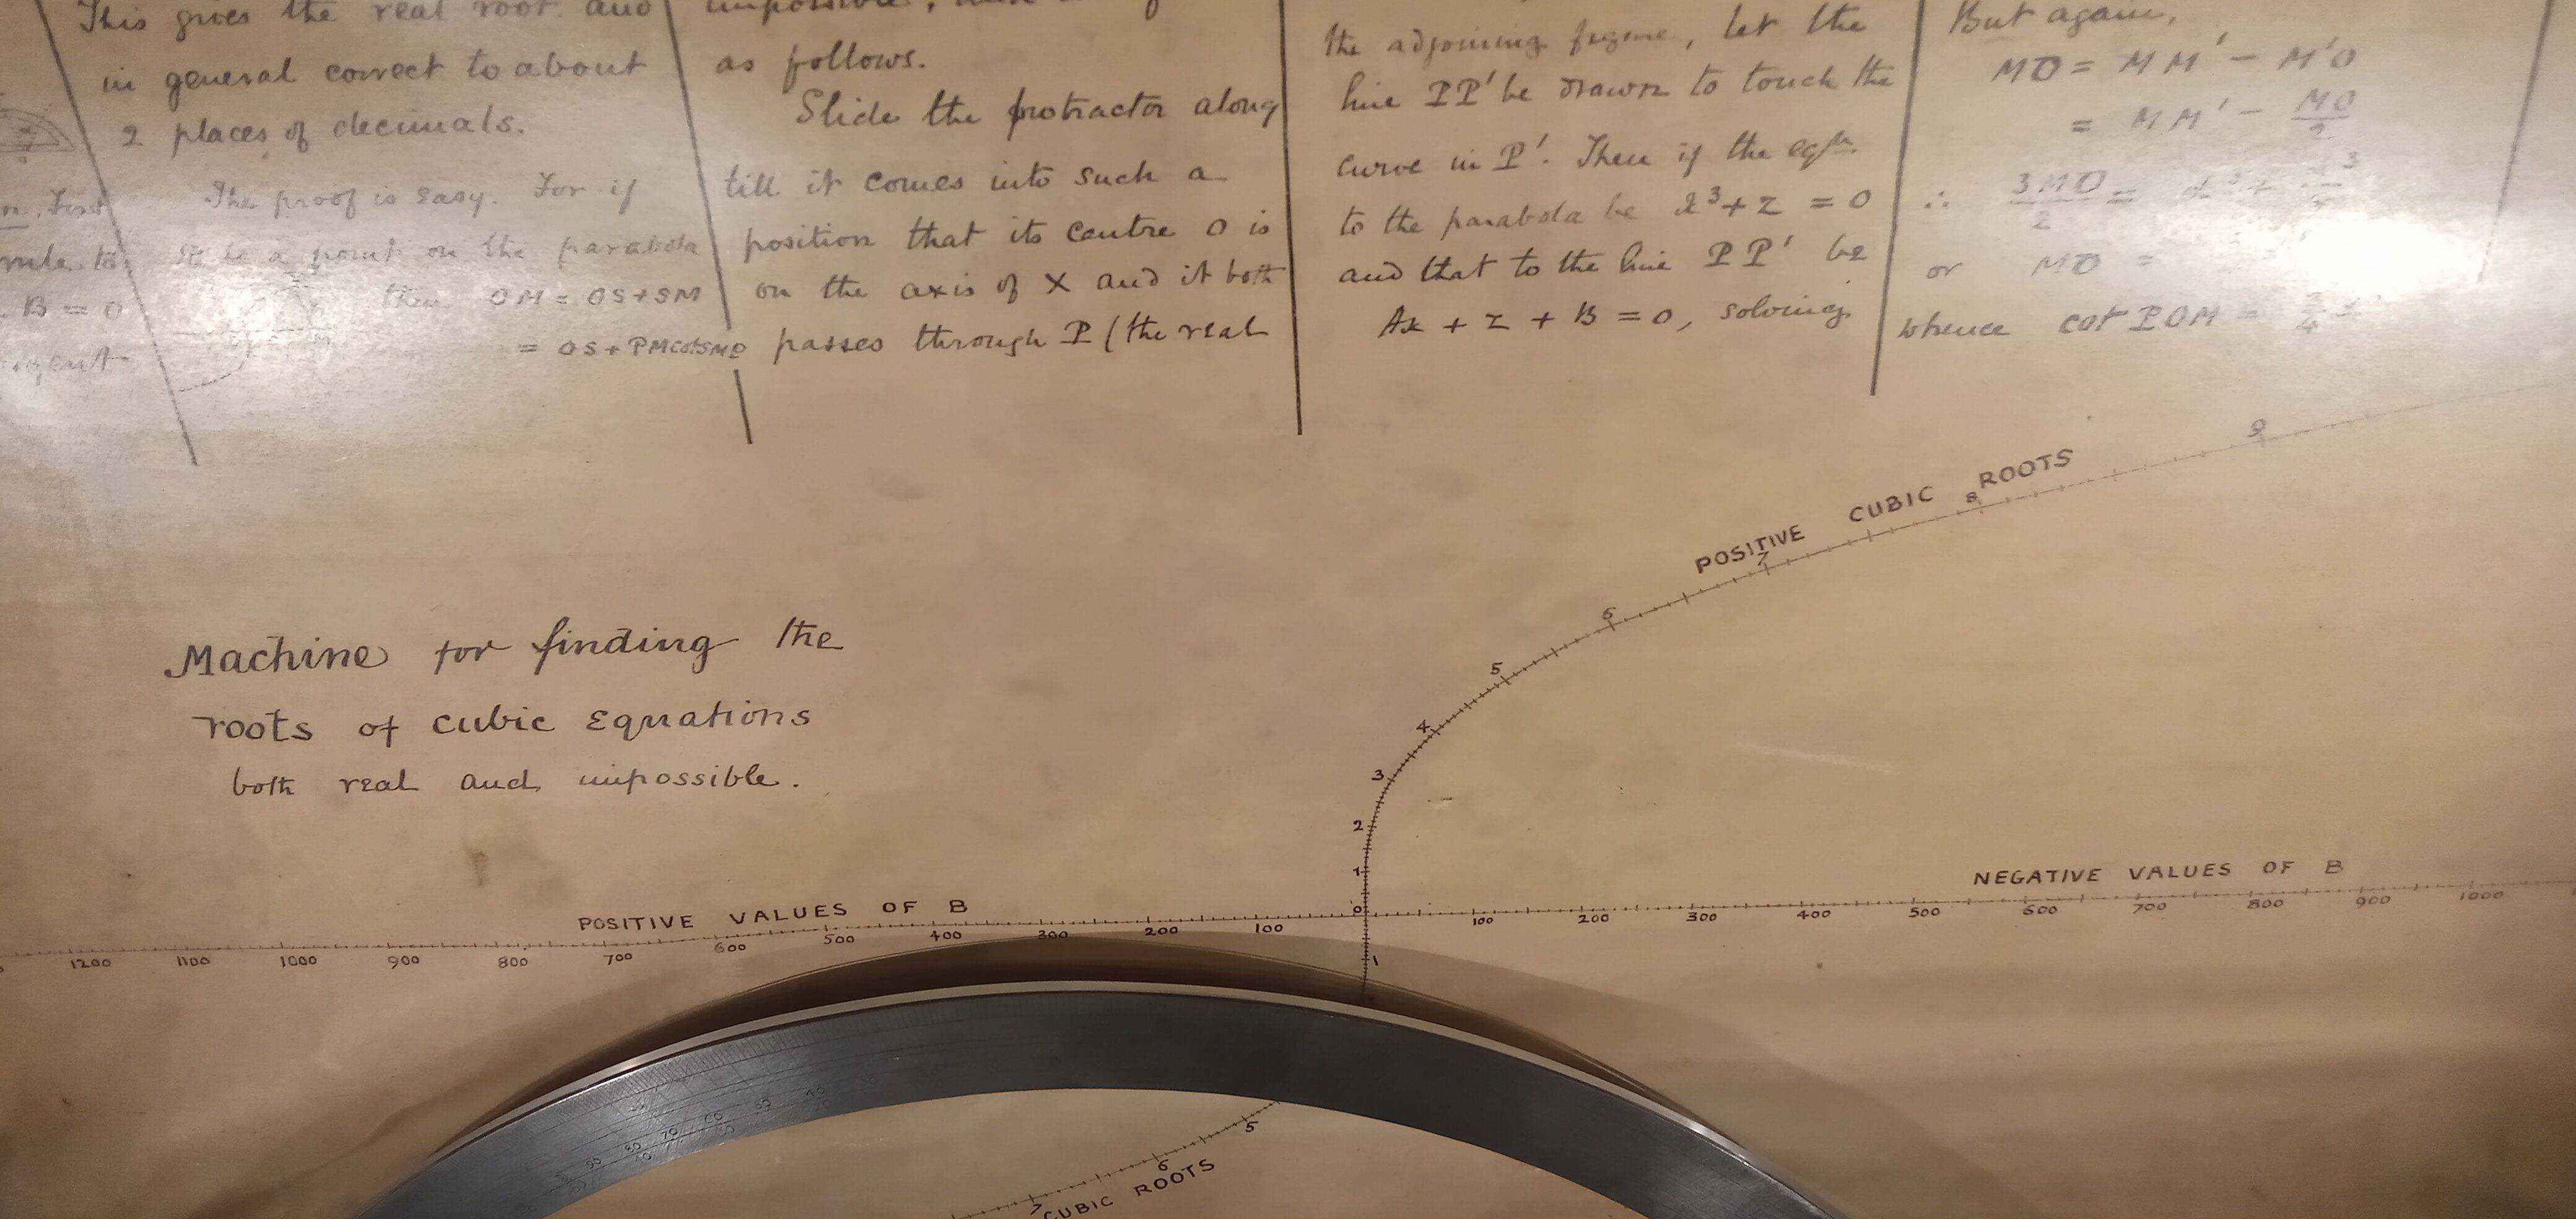 This gives the real root and
in general correct to about
2 places of decimals.
The proof is easy. For if
be a point on the parabola
then OM = OS + SM
= OS + PM cot SMP
B = 0
as follows.
Slide the protractor along
till it comes into such a
position that its centre O is
on the axis of X and it both
passes through P (the real
the adjoining figure, let the
line PP' be drawn to touch the
curve in P'. Then if the eqn.
to the parabola be x³ + z = 0
and that to the line PP' be
Ax + z + B = 0, solving
But again,
MO = MM' - M'O
= MM' - MO/2
∴ 3MO/2 =
or MO =
whence cot POM =
Machine for finding the
roots of cubic Equations
both real and impossible.
POSITIVE CUBIC ROOTS
9
8
7
6
5
4
3
2
1
0
1
NEGATIVE VALUES OF B
100 200 300 400 500 600 700 800 900 1000
POSITIVE VALUES OF B
1200 1100 1000 900 800 700 600 500 400 300 200 100
5
6
7
CUBIC ROOTS